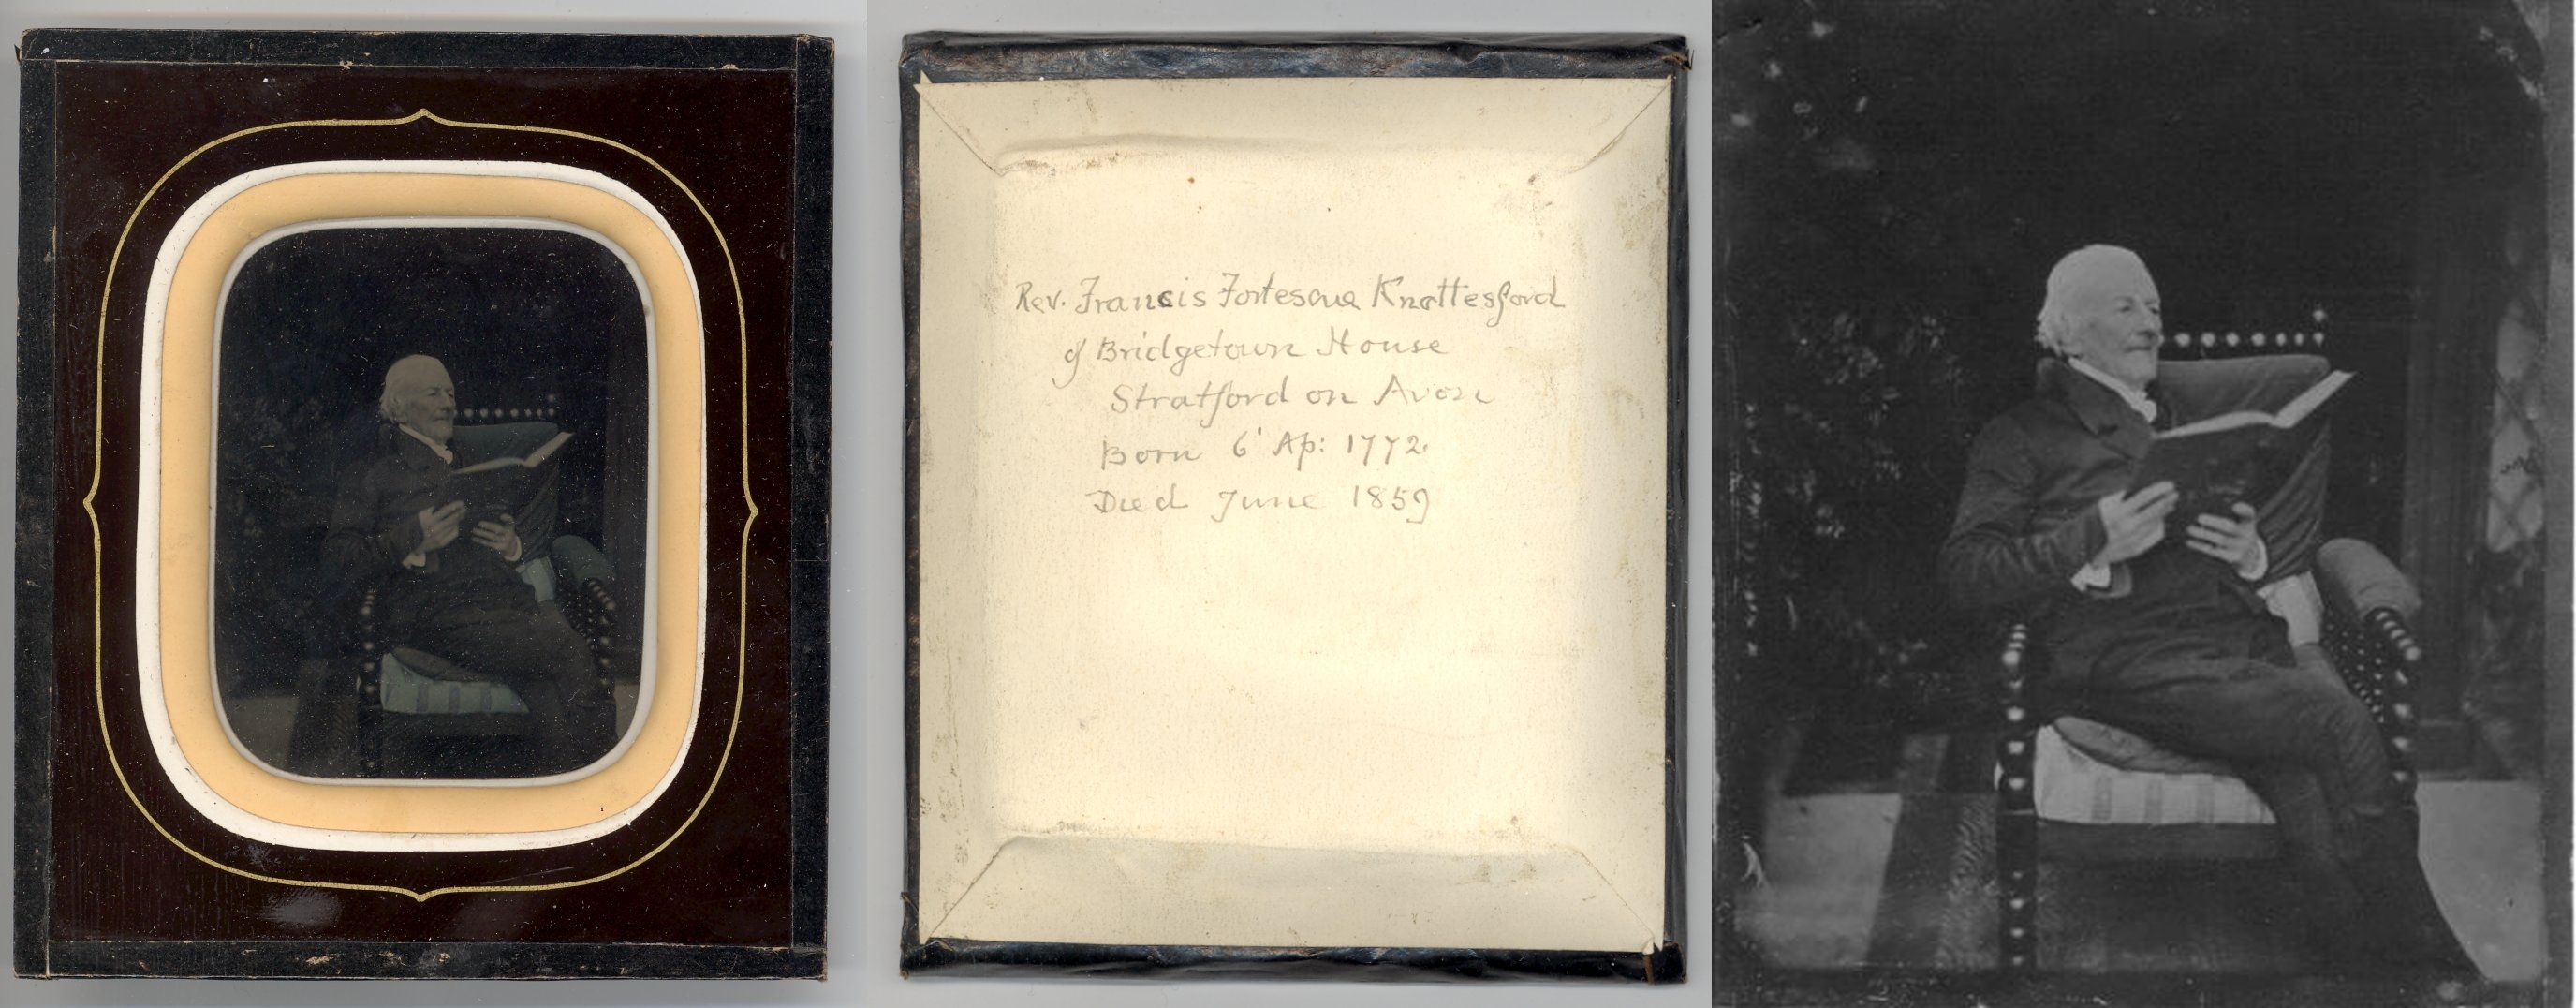 Rev. Francis Fortescue Knottesford
of Bridgetown House
Stratford on Avon
Born 6' Ap: 1772.
Died June 1859